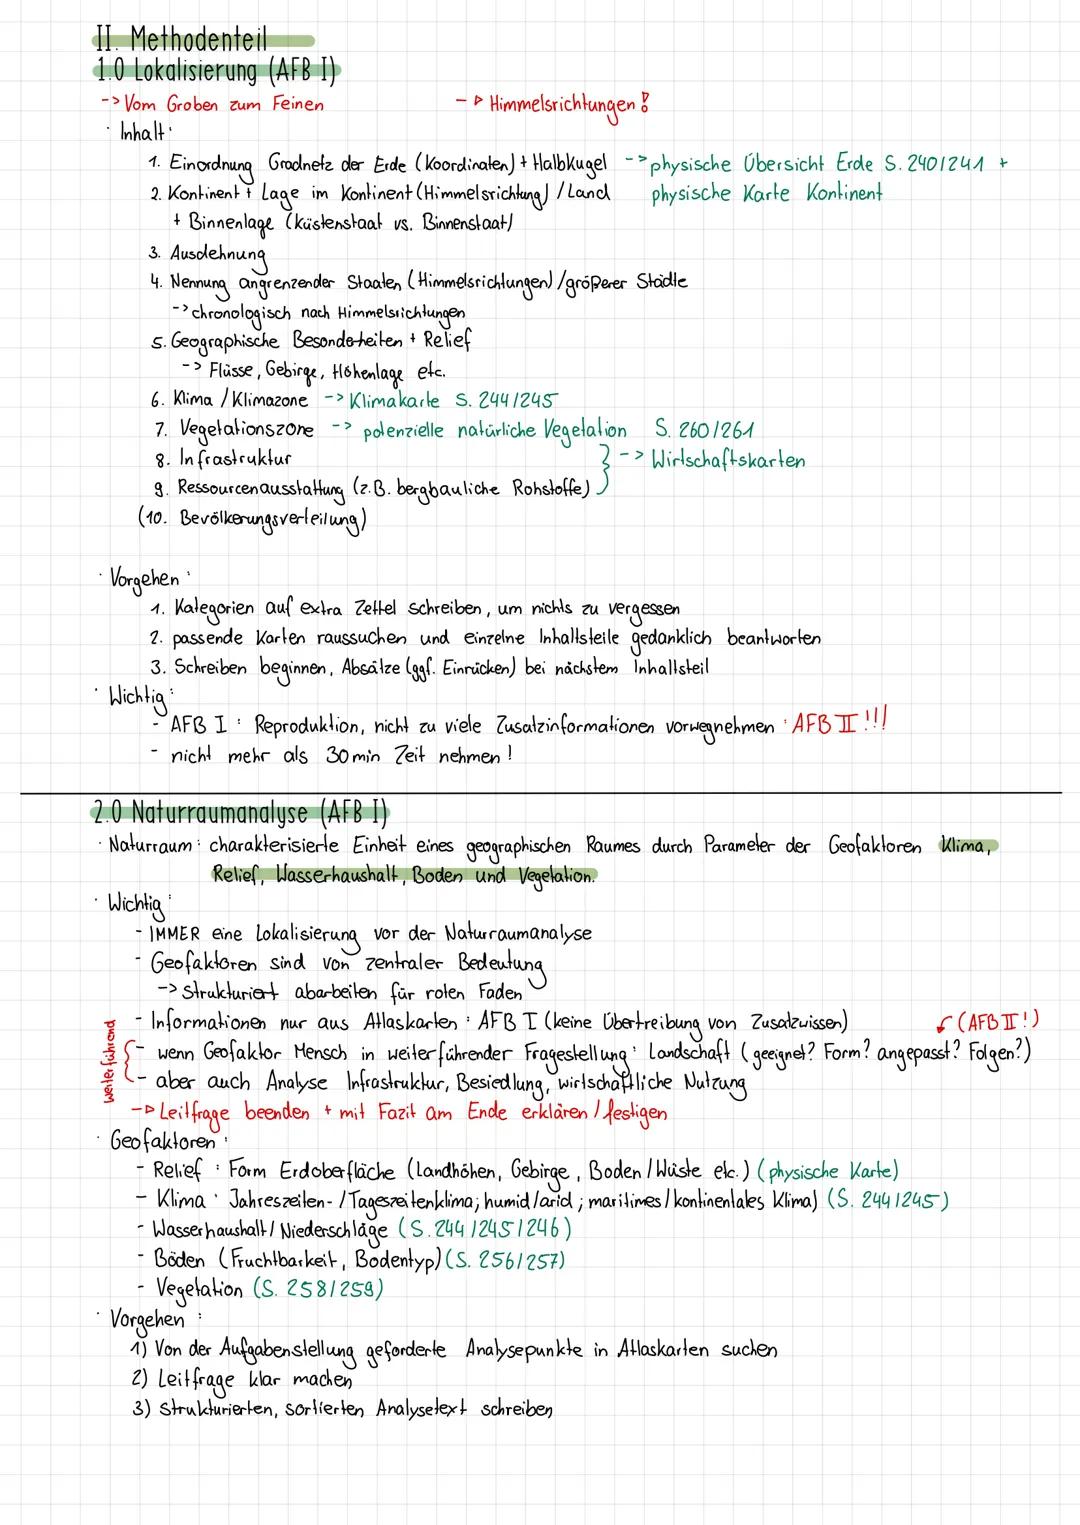 II. Methodenteil
1.0 Lokalisierung (AFB I)
-> Vom Groben zum Feinen -> Himmelsrichtungen!
· Inhalt:
1. Einordnung Gradnetz der Erde (Koordinaten) + Halbkugel -> physische Übersicht Erde S. 240/241 +
2. Kontinent + Lage im Kontinent (Himmelsrichtung) / Land physische Karte Kontinent
+ Binnenlage (Küstenstaat vs. Binnenstaat)
3. Ausdehnung
4. Nennung angrenzender Staaten (Himmelsrichtungen) / größerer Städte
-> chronologisch nach Himmelsrichtungen
5. Geographische Besonderheiten + Relief
-> Flüsse, Gebirge, Höhenlage etc.
6. Klima / Klimazone -> Klimakarte S. 244/245
7. Vegetationszone -> potenzielle natürliche Vegetation S. 260/261
8. Infrastruktur } -> Wirtschaftskarten
9. Ressourcenausstattung (z.B. bergbauliche Rohstoffe)
(10. Bevölkerungsverteilung)
· Vorgehen:
1. Kategorien auf extra Zettel schreiben, um nichts zu vergessen
2. passende Karten raussuchen und einzelne Inhaltsteile gedanklich beantworten
3. Schreiben beginnen, Absätze (ggf. Einrücken) bei nächstem Inhaltsteil
· Wichtig:
- AFB I: Reproduktion, nicht zu viele Zusatzinformationen vorwegnehmen: AFB II!!!
- nicht mehr als 30 min Zeit nehmen!
2.0 Naturraumanalyse (AFB I)
· Naturraum: charakterisierte Einheit eines geographischen Raumes durch Parameter der Geofaktoren Klima,
Relief, Wasserhaushalt, Boden und Vegetation.
· Wichtig:
- IMMER eine Lokalisierung vor der Naturraumanalyse
- Geofaktoren sind von zentraler Bedeutung
-> Strukturiert abarbeiten für roten Faden
- Informationen nur aus Atlaskarten: AFB I (keine Übertreibung von Zusatzwissen) (AFB II!)
weiterführend { - wenn Geofaktor Mensch in weiterführender Fragestellung: Landschaft (geeignet? Form? angepasst? Folgen?)
- aber auch Analyse Infrastruktur, Besiedlung, wirtschaftliche Nutzung
-> Leitfrage beenden + mit Fazit am Ende erklären / festigen
· Geofaktoren:
- Relief: Form Erdoberfläche (Landhöhen, Gebirge, Boden / Wüste etc.) (physische Karte)
- Klima: Jahreszeiten- / Tageszeitenklima; humid/arid; maritimes/kontinentales Klima) (S. 244/245)
- Wasserhaushalt / Niederschläge (S. 244/245/246)
- Böden (Fruchtbarkeit, Bodentyp) (S. 256/257)
- Vegetation (S. 258/259)
· Vorgehen:
1) Von der Aufgabenstellung geforderte Analysepunkte in Atlaskarten suchen
2) Leitfrage klar machen
3) Strukturierten, sortierten Analysetext schreiben